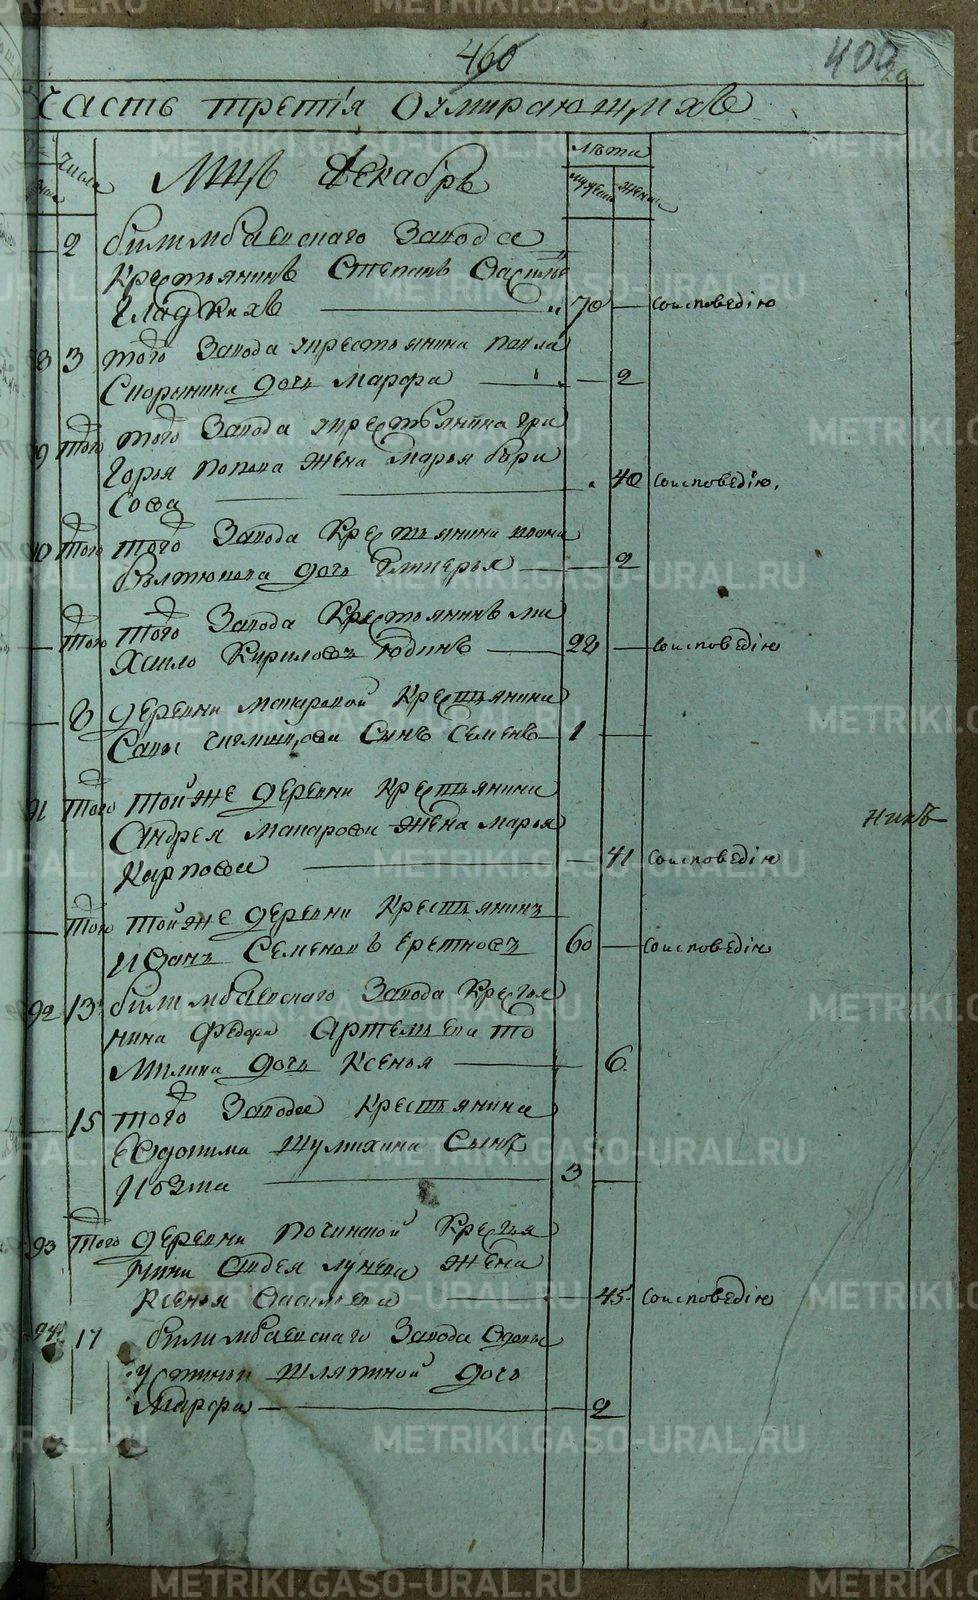 460
400
Часть третїя О умирающихъ
числа
Мцъ Декабрь
лѣта
мужеска
женска
2 билимбаевскаго Завода
Крестьянинъ Степанъ Василь
Гладкихъ — 70 — Сысповедїю
3 того Завода крестьянина павла
Спорынина дочь марфа — 2
того того Завода крестьянина гри
горья попова жена Марья бори
сова — 40 Сысповедїю
того того Завода Крестьянина
дочь — 2
того того Завода Крестьянинъ ми
хаило Кириловъ Юдинъ — 22 — Сысповедїю
8 деревни макаровой Крестьянина
Савы сынъ Семенъ — 1 —
91 того тойже деревни Крестьянина
Андрея макарова жена марья
Карпова — 41 Сысповедїю
того тойже деревни Крестьянинъ
Иванъ Семеновъ еретновъ 60 — Сысповедїю
92 13 билимбаевскаго Завода Кресья
нина Федора Артемьева то
милина дочь Ксенья — 6
15 того Завода Крестьянина
Евдокима Шулихина Сынъ
Козма — 3 —
93 того деревни починской Кресья
нина Авдея лунева жена
Ксенья Васильева — 45 Сысповедїю
94 17 билимбаевскаго Завода вдовы
Устиньи Шляпиной дочь
Марфа — 2
METRIKI.GASO-URAL.RU